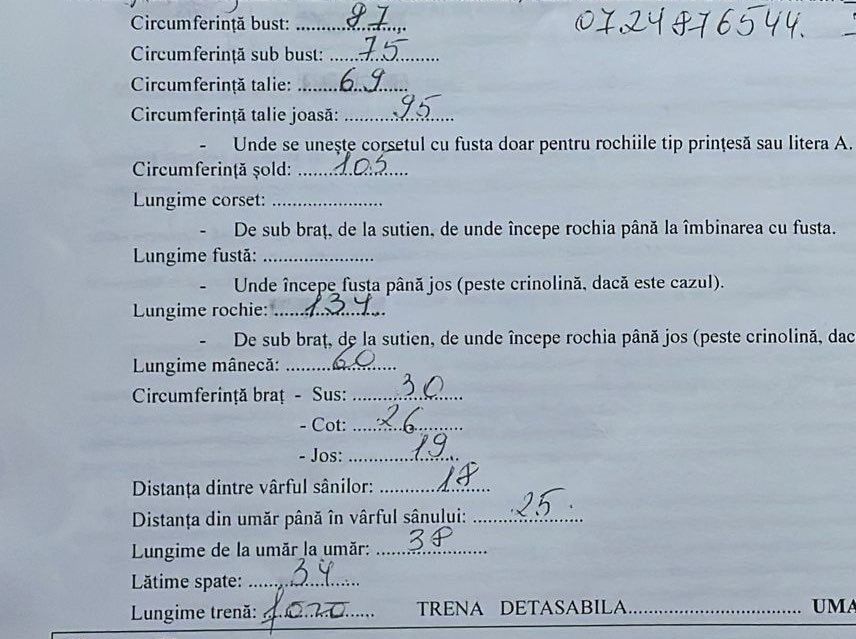 Circumferință bust: ...87... 0724876544.
Circumferință sub bust: ...75...
Circumferință talie: ...69...
Circumferință talie joasă: ...95...
- Unde se unește corsetul cu fusta doar pentru rochiile tip prințesă sau litera A.
Circumferință șold: ...105...
Lungime corset: ......................
- De sub braț, de la sutien, de unde începe rochia până la îmbinarea cu fusta.
Lungime fustă: ......................
- Unde începe fusta până jos (peste crinolină, dacă este cazul).
Lungime rochie: ...134...
- De sub braț, de la sutien, de unde începe rochia până jos (peste crinolină, dac
Lungime mânecă: ...60...
Circumferință braț - Sus: ...30...
- Cot: ...26...
- Jos: ...19...
Distanța dintre vârful sânilor: ...18...
Distanța din umăr până în vârful sânului: ...25...
Lungime de la umăr la umăr: ...38...
Lățime spate: ...34...
Lungime trenă: ...... TRENA DETASABILA.................................. UMA